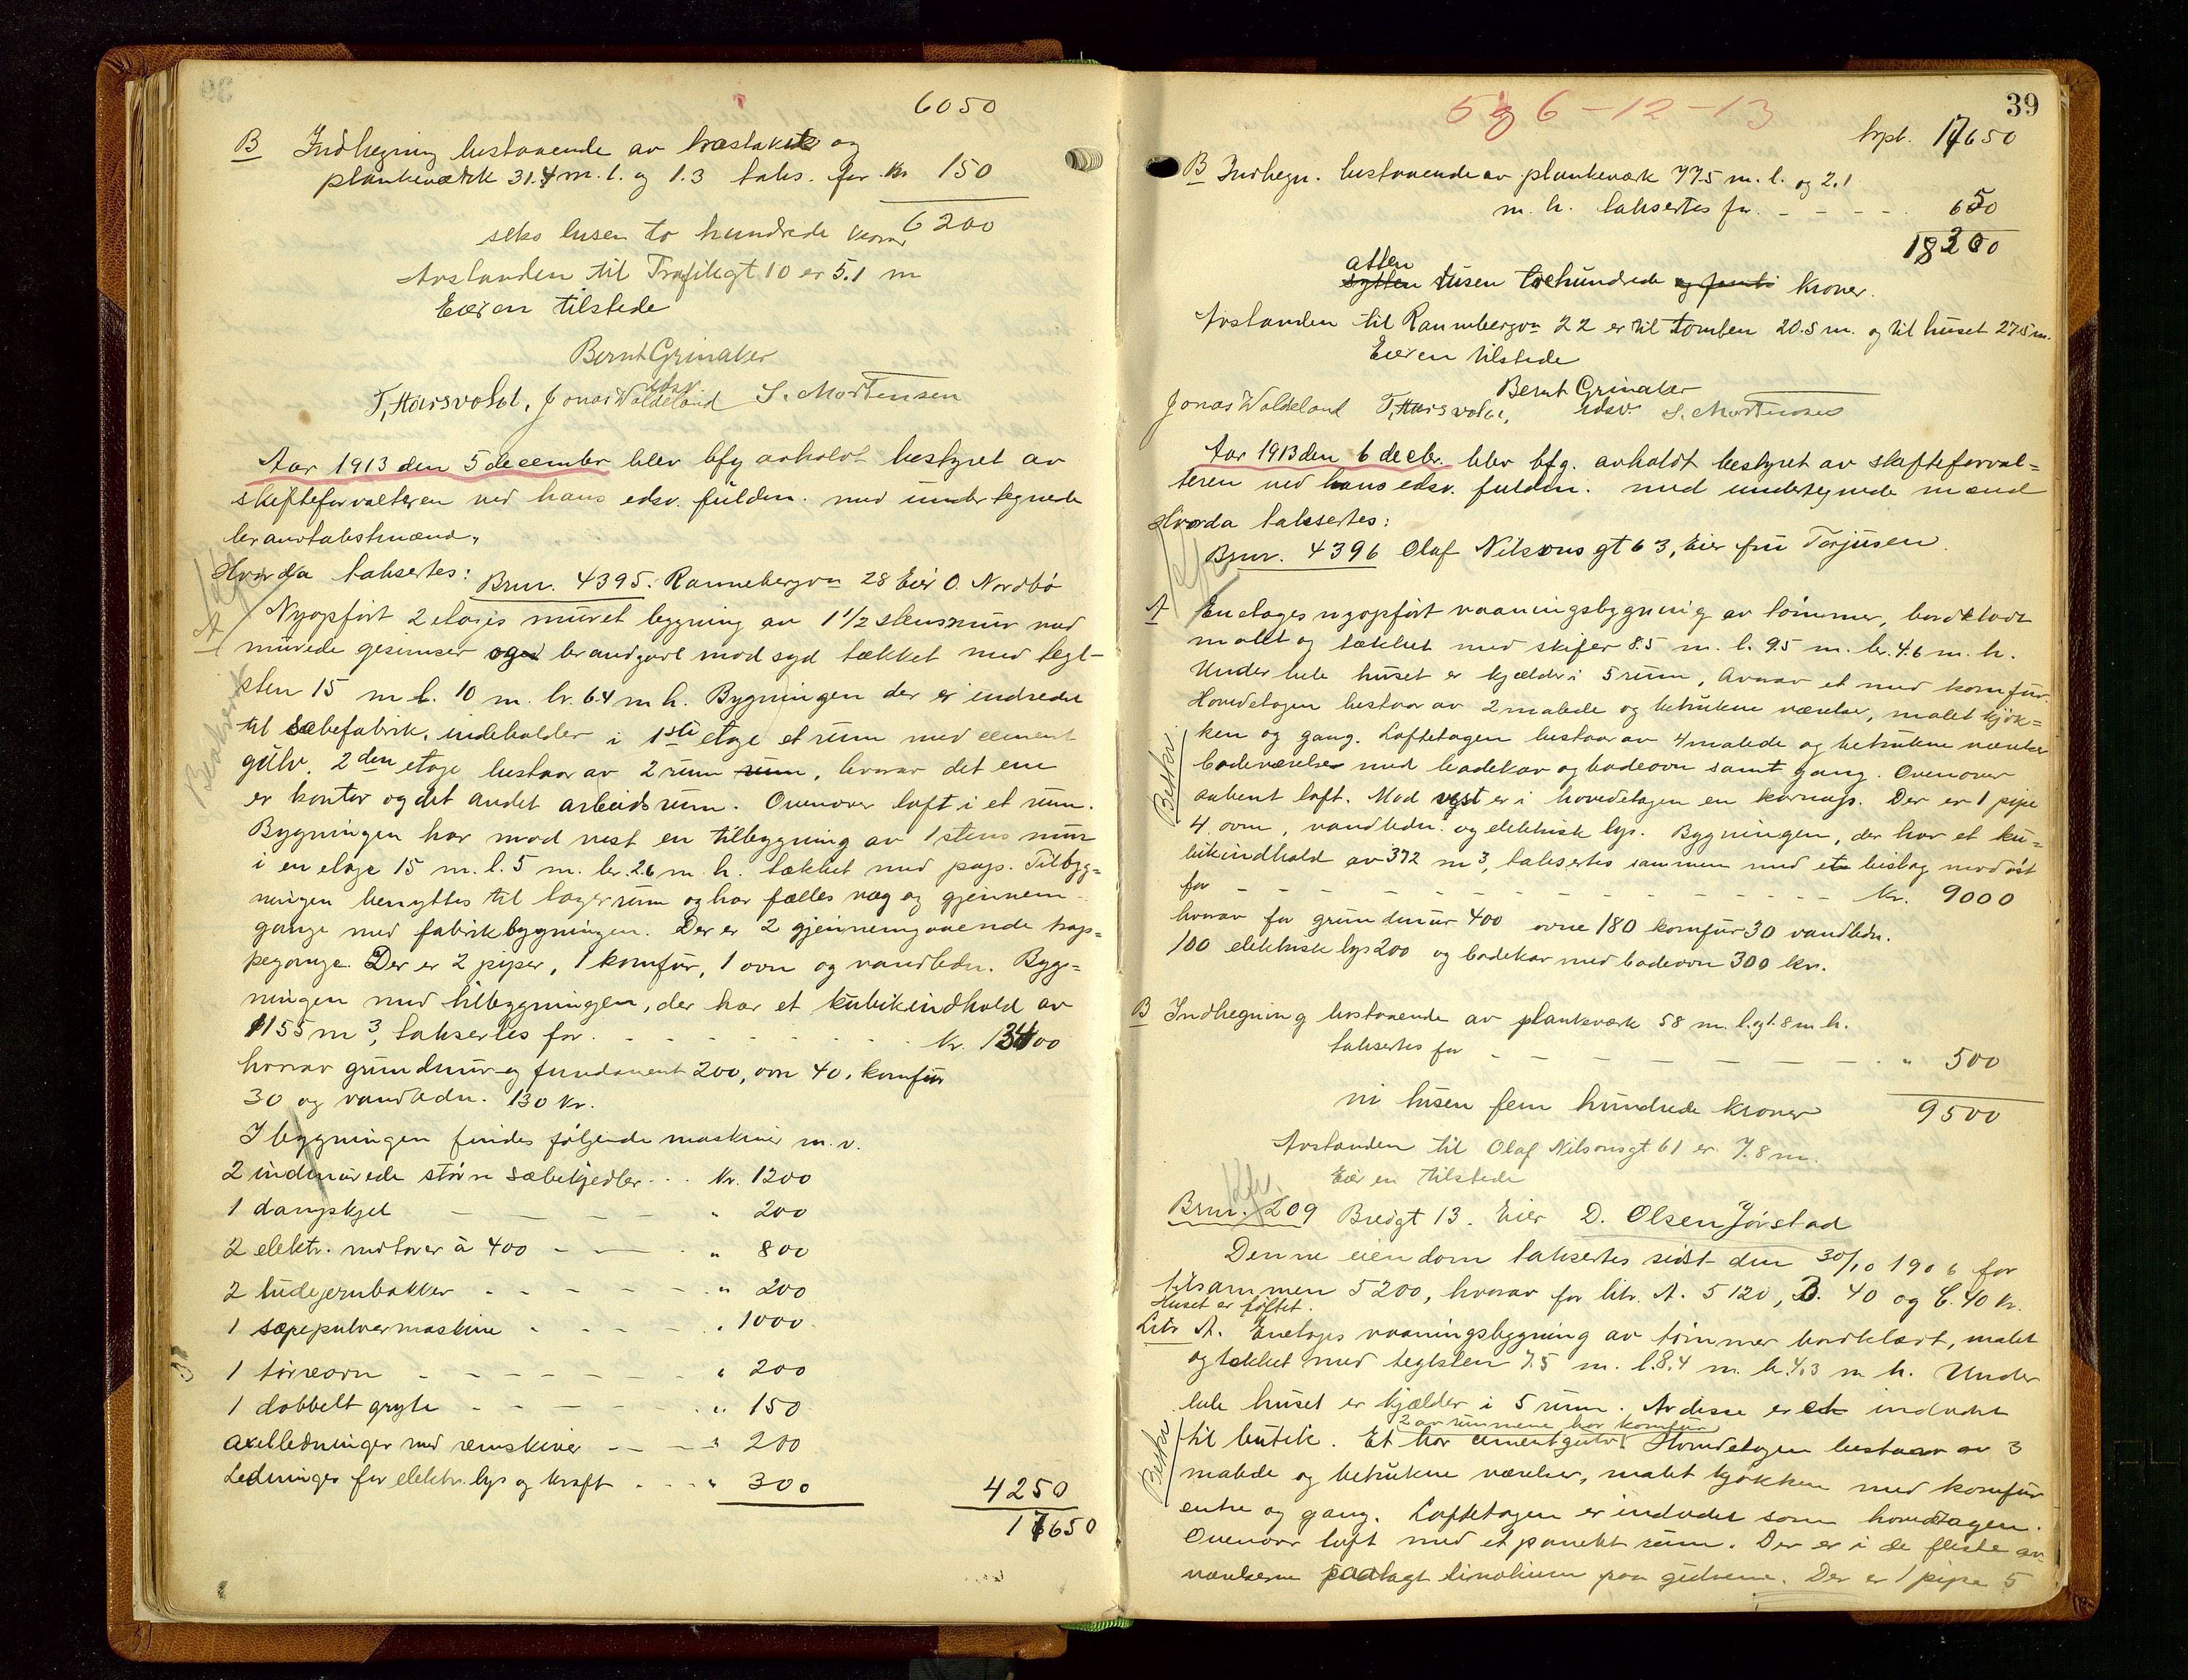 6050
B Indhegning bestaaende av træstakit og
plankeværk 31.4 m. l. og 1.3 taks. for kr 150
seks tusen to hundrede kroner 6200
Avstanden til Trafikgt 10 er 5.1 m
Eieren tilstede
Bernt Grinaker
edsv.
T. Harsvoldt. Jonas Waldeland S. Mortensen
Aar 1913 den 5 december blev bfg avholdt bestyret av
skifteforvalteren ved hans edsv. fuldm. med undertegnede
brandtakstmænd.
Hvorda taksertes: Brnr. 4395. Rannebergvn 28 Eier O. Nordbö
A Nyopfört 2 etages muret bygning av 1 1/2 stens mur med
murede gesimser og brandgavl mod syd tækket med tegl-
sten 15 m l. 10 m. br. 6.4 m h. Bygningen der er indredet
til sæbefabrik, indeholder i 1ste etage et rum med cement
gulv. 2den etage bestaar av 2 rum rum, hvorav det ene
er kontor og det andet arbeidsrum. Ovenover loft i et rum.
Bygningen har mod vest en tilbygning av 1 stens mur
i en etage 15 m. l. 5 m. br. 2.6 m. h. tækket med pap. Tilbyg=
ningen benyttes til lagerrum og har fælles væg og gjennem-
gange med fabrikbygningen. Der er 2 gjennemgaaende trap=
pegange. Der er 2 piper, 1 komfur, 1 ovn og vandledn. Byg=
ningen med tilbygningen, der har et kubikindhold av
1155 m3, taksertes for . . . . kr. 13400
hvorav grundmur og fundament 200, ovn 40, komfur
30 og vandledn. 130 kr.
I bygningen findes følgende maskiner m. v.
2 indmurede større sæbekjedler . . . kr. 1200
1 dampkjel - - - - " 200
2 elektr. motorer à 400 - - - " 800
2 ludejernbakker - - - - - " 200
1 sæpepulvermaskine - - - - " 1000
1 tørreovn - - - - - - " 200
1 dobbelt gryte - - - - - " 150
axelledninger med remskiver - - - " 200
Ledninger for elektr. lys og kraft . . . " 300 4250
17650
39
5 og 6 - 12 - 13
trpt. 17650
B Indhegn. bestaaende av plankeværk 77.5 m. l. og 2.1
m. h. taksertes for - - - - - 650
18300
atten
sytten tusen trehundrede og femti kroner.
Avstanden til Rannebergvn 22 er til tomten 20.5 m. og til huset 27.5 m.
Eieren tilstede
Bernt Grinaker
Jonas Waldeland T. Harsvoldt, edsv. S. Mortensen
Aar 1913 den 6 decbr. blev bfg. avholdt bestyret av skifteforval=
teren ved hans edsv. fuldm. med undertegnede mænd
Hvorda taksertes:
Brnr. 4396 Olaf Nilsons gt 63, Eier fru Torjusen.
A En etages nyopført vaaningsbygning av tømmer, bordklædt
malet og tækket med skifer 8.5 m. l. 9.5 m. br. 4.6 m. h.
Under hele huset er kjælder i 5 rum, hvorav et med komfur.
Hovedetagen bestaar av 2 malede og betrukne værelser, malet kjøk=
ken og gang. Loftetagen bestaar av 4 malede og betrukne værelser
badeværelse med badekar og badeovn samt gang. Ovenover
aabent loft. Mod vest er i hovedetagen en karnap. Der er 1 pipe
4 ovne, vandledn. og elektrisk lys. Bygningen, der har et ku=
Beskr.
bikindhold av 372 m3, taksertes sammen med et bislag mod øst
for - - - - - - - - - - - kr. 9000
hvorav for grundmur 400 ovne 180 komfur 30 vandledn.
100 elektrisk lys 200 og badekar med badeovn 300 kr.
B Indhegning bestaaende av plankeværk 58 m. l. og 1.8 m h.
taksertes for - - - - - - - " 500
ni tusen fem hundrede kroner 9500
Avstanden til Olaf Nilsonsgt 61 er 7.8 m.
Eieren tilstede
Brnr. 209 Bredgt 13. Eier D. Olsen Jørstad
Denne eiendom taksertes sidst den 30/10 1906 for
tilsammen 5200, hvorav for litr. A. 5120, B. 40 og C. 40 kr.
Huset er løftet.
Litr A. Enetages vaaningsbygning av tømmer bordklædt, malet
og tækket med teglsten 7.5 m. l. 8.4 m. br. 4.3 m h. Under
hele huset er kjælder i 5 rum. Av disse er et indredet
2 av rummene har komfur
til butik. Et har cementgulv. Hovedetagen bestaar av 3
Beskr.
malede og betrukne værelser, malet kjøkken med komfur
entre og gang. Loftetagen er indredet som hovedetagen.
Ovenover loft med et panelt rum. Der er i de fleste av
værelserne paalagt linoleum paa gulvene. Der er 1 pipe 5